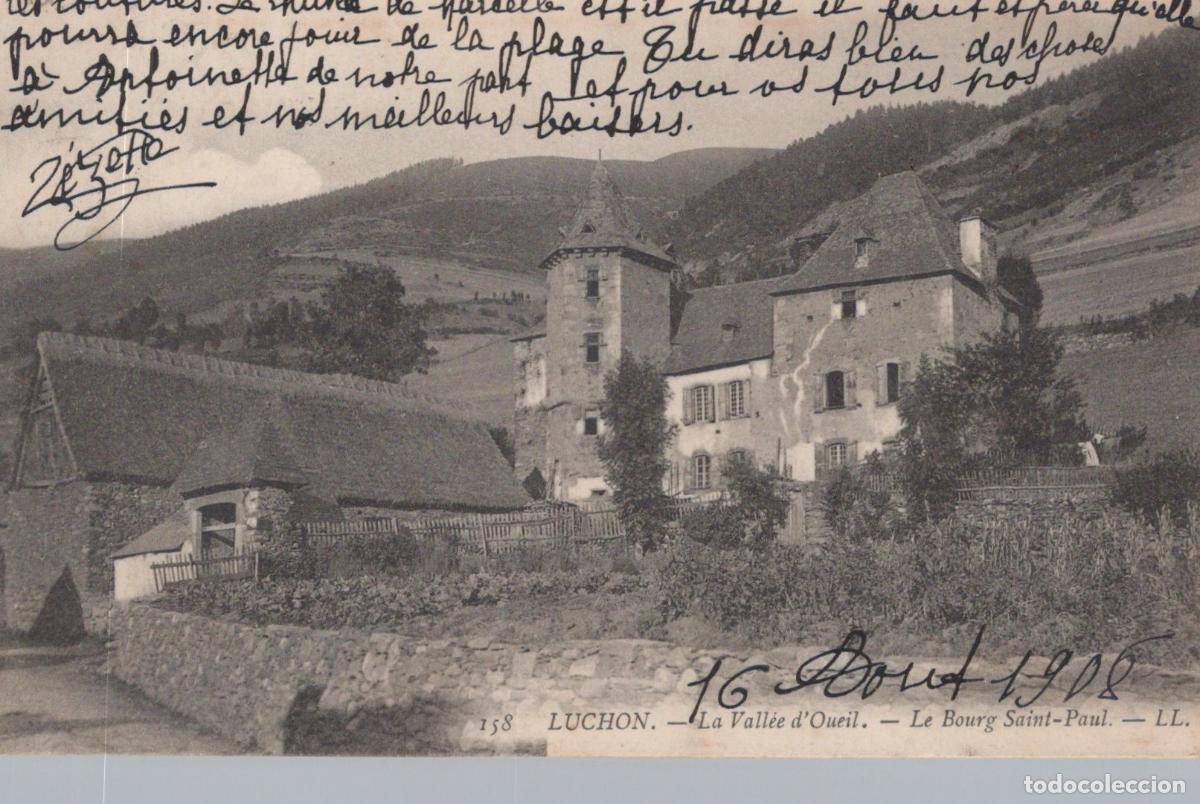 les coutures. Le rhume de Marcelle est il passé il faut espérer qu'elle
pourra encore jouir de la plage Tu diras bien des choses
à Antoinette de notre part et pour vs tous nos
amitiés et nos meilleurs baisers.
Zézette
16 Aout 1906
158 LUCHON. — La Vallée d'Oueil. — Le Bourg Saint-Paul. — LL.
todocoleccion